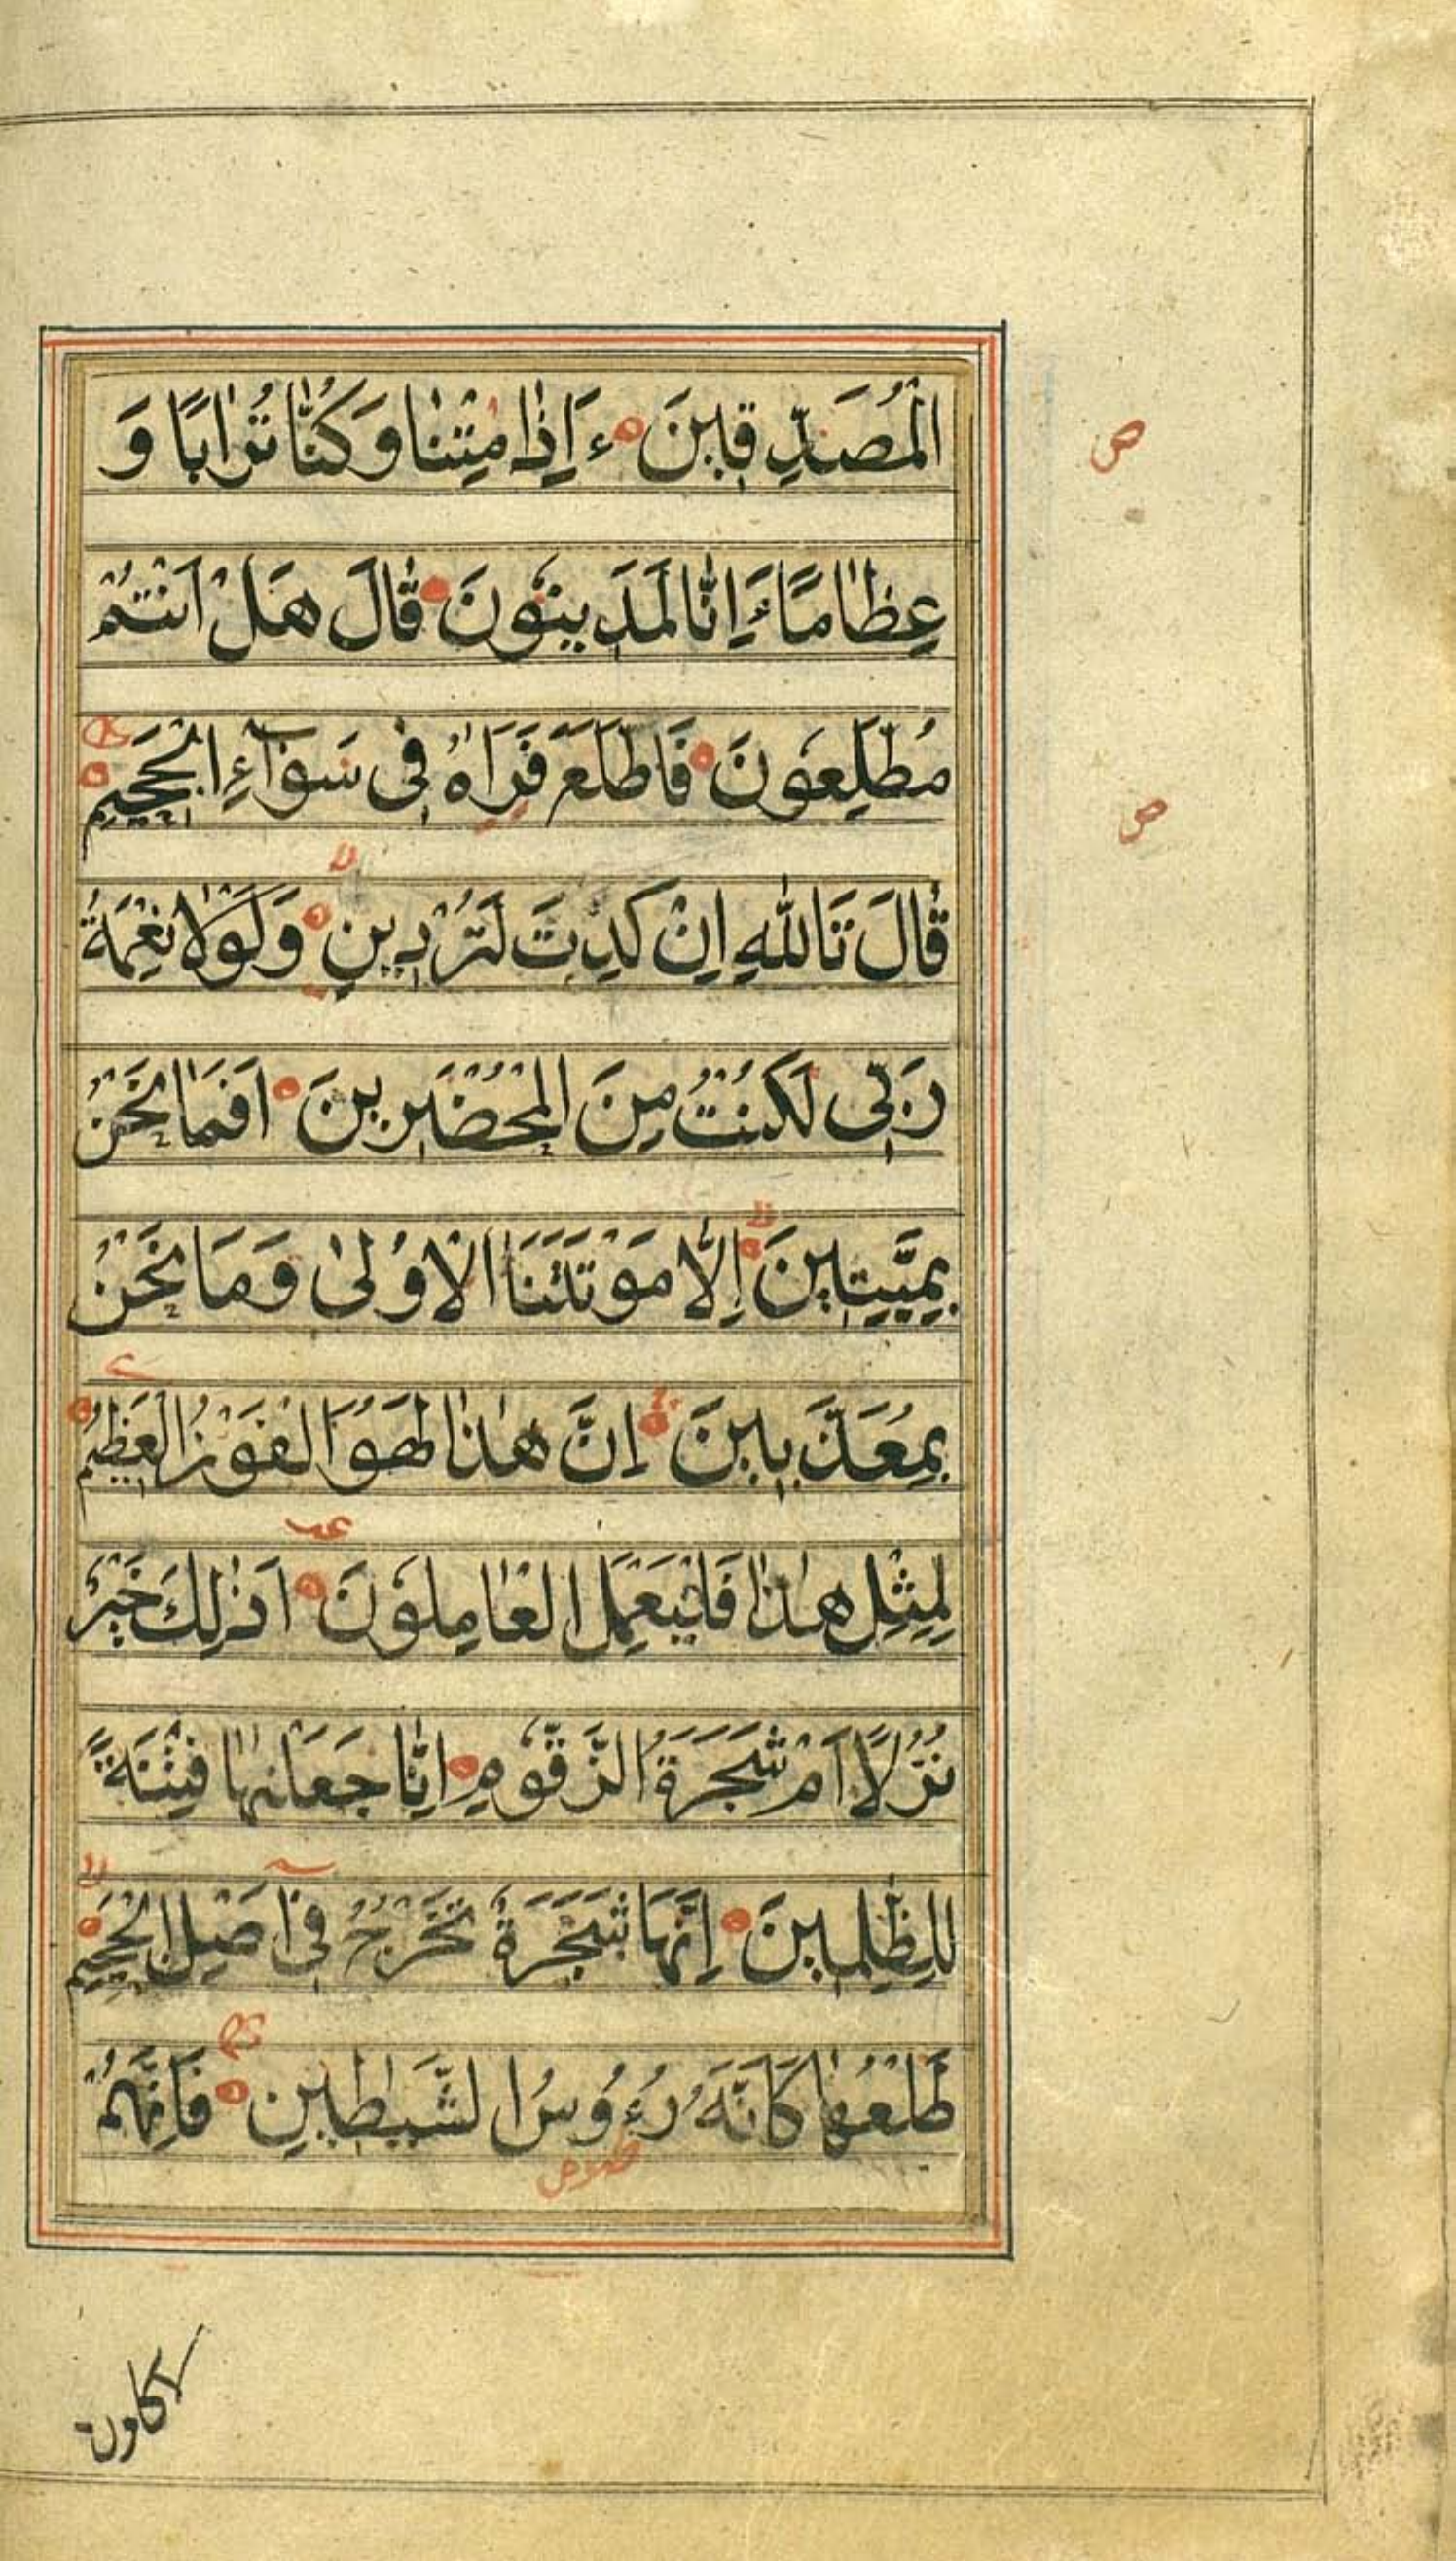 الْمُصَدِّقِينَ ءَاِذَا مِتْنَا وَكُنَّا تُرَابًا وَ
عِظَامًا ءَاِنَّا لَمَدِينُونَ قَالَ هَلْ اَنْتُمْ
مُطَّلِعُونَ فَاطَّلَعَ فَرَاٰهُ فِى سَوَآءِ الْجَحِيمِ
قَالَ تَاللّٰهِ اِنْ كِدْتَ لَتُرْدِينِ وَلَوْلَا نِعْمَةُ
رَبِّى لَكُنْتُ مِنَ الْمُحْضَرِينَ اَفَمَا نَحْنُ
بِمَيِّتِينَ اِلَّا مَوْتَتَنَا الْاُولٰى وَمَا نَحْنُ
بِمُعَذَّبِينَ اِنَّ هٰذَا لَهُوَ الْفَوْزُ الْعَظِيمُ
لِمِثْلِ هٰذَا فَلْيَعْمَلِ الْعَامِلُونَ اَذٰلِكَ خَيْرٌ
نُزُلًا اَمْ شَجَرَةُ الزَّقُّومِ اِنَّا جَعَلْنٰهَا فِتْنَةً
لِلظّٰلِمِينَ اِنَّهَا شَجَرَةٌ تَخْرُجُ فِىٓ اَصْلِ الْجَحِيمِ
طَلْعُهَا كَاَنَّهُ رُءُوسُ الشَّيٰطِينِ فَاِنَّهُمْ
ص
ص
لاكلون